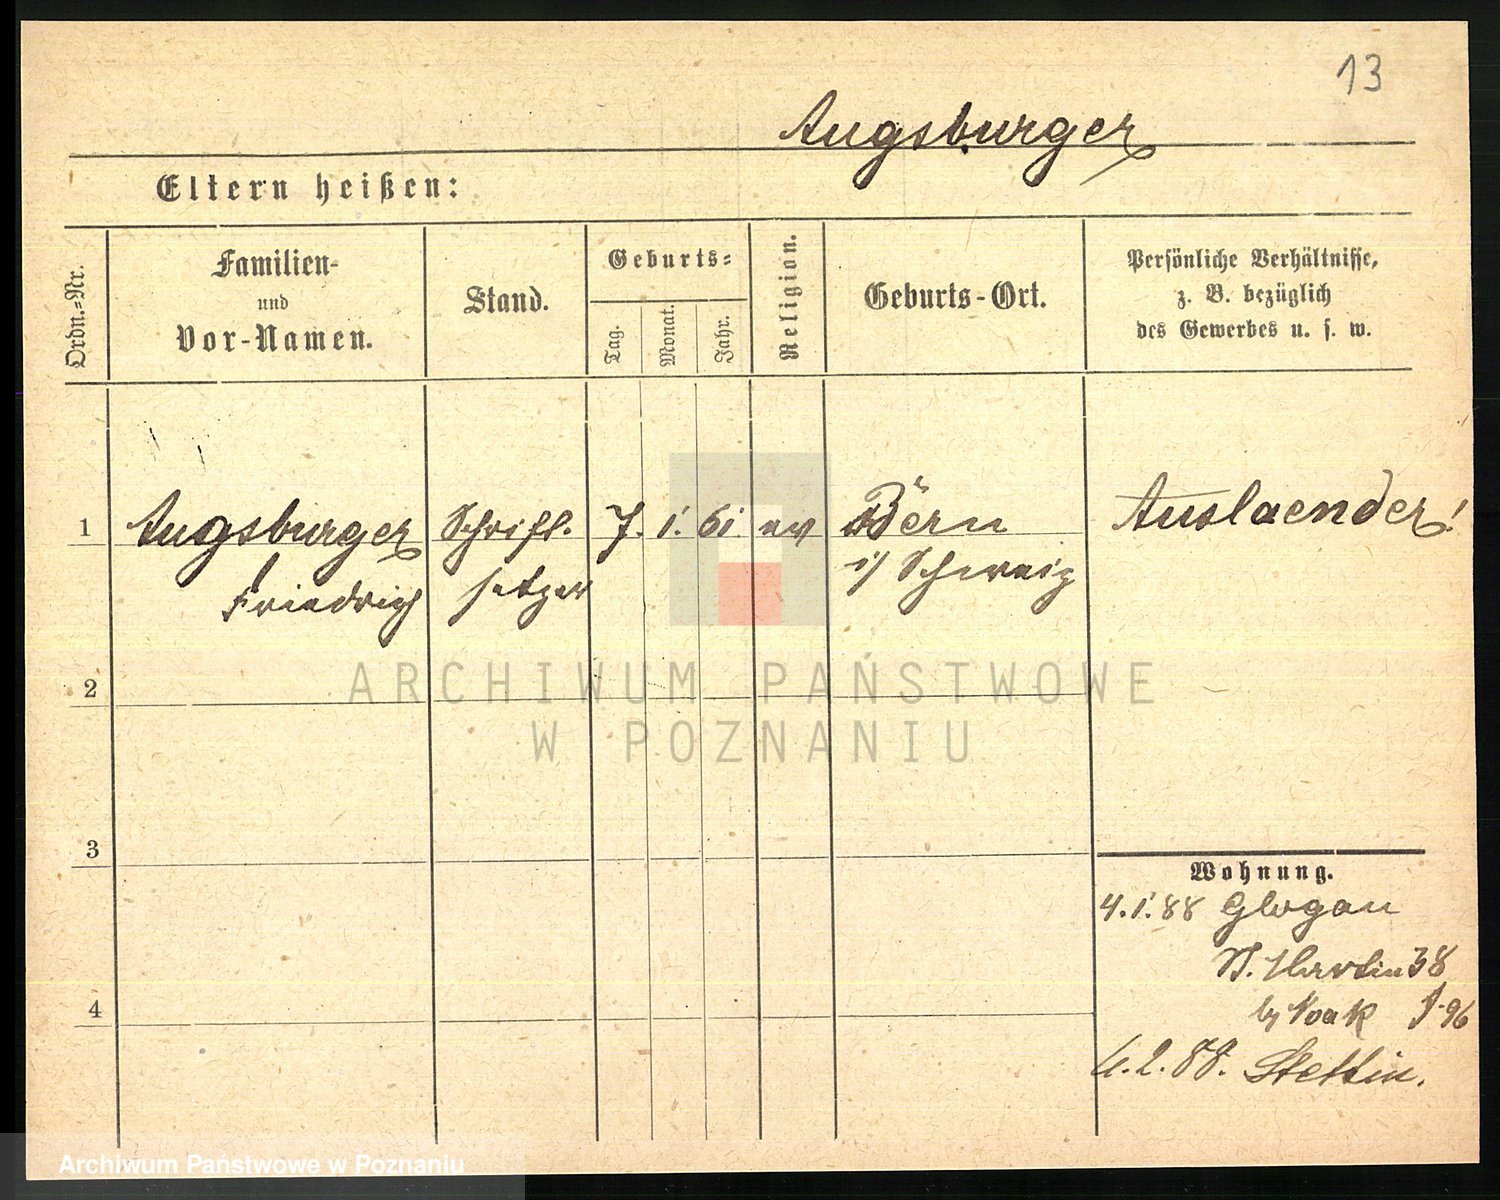 13
Augsburger
Eltern heißen:
Ordn.=Nr.
Familien-
und
Vor-Namen.
Stand.
Geburts=
Tag.
Monat.
Jahr.
Religion.
Geburts-Ort.
Persönliche Verhältnisse,
z. B. bezüglich
des Gewerbes u. s. w.
1
Augsburger
Friedrich
Schrift-
setzer
7.
1.
61.
ev
Bern
i/ Schweiz
Auslaender!
2
3
4
Wohnung.
4.1.88 Glogau
St. Martin 38
by Noak J. 96
6.2.88. Stettin.
ARCHIWUM PAŃSTWOWE
W POZNANIU
Archiwum Państwowe w Poznaniu